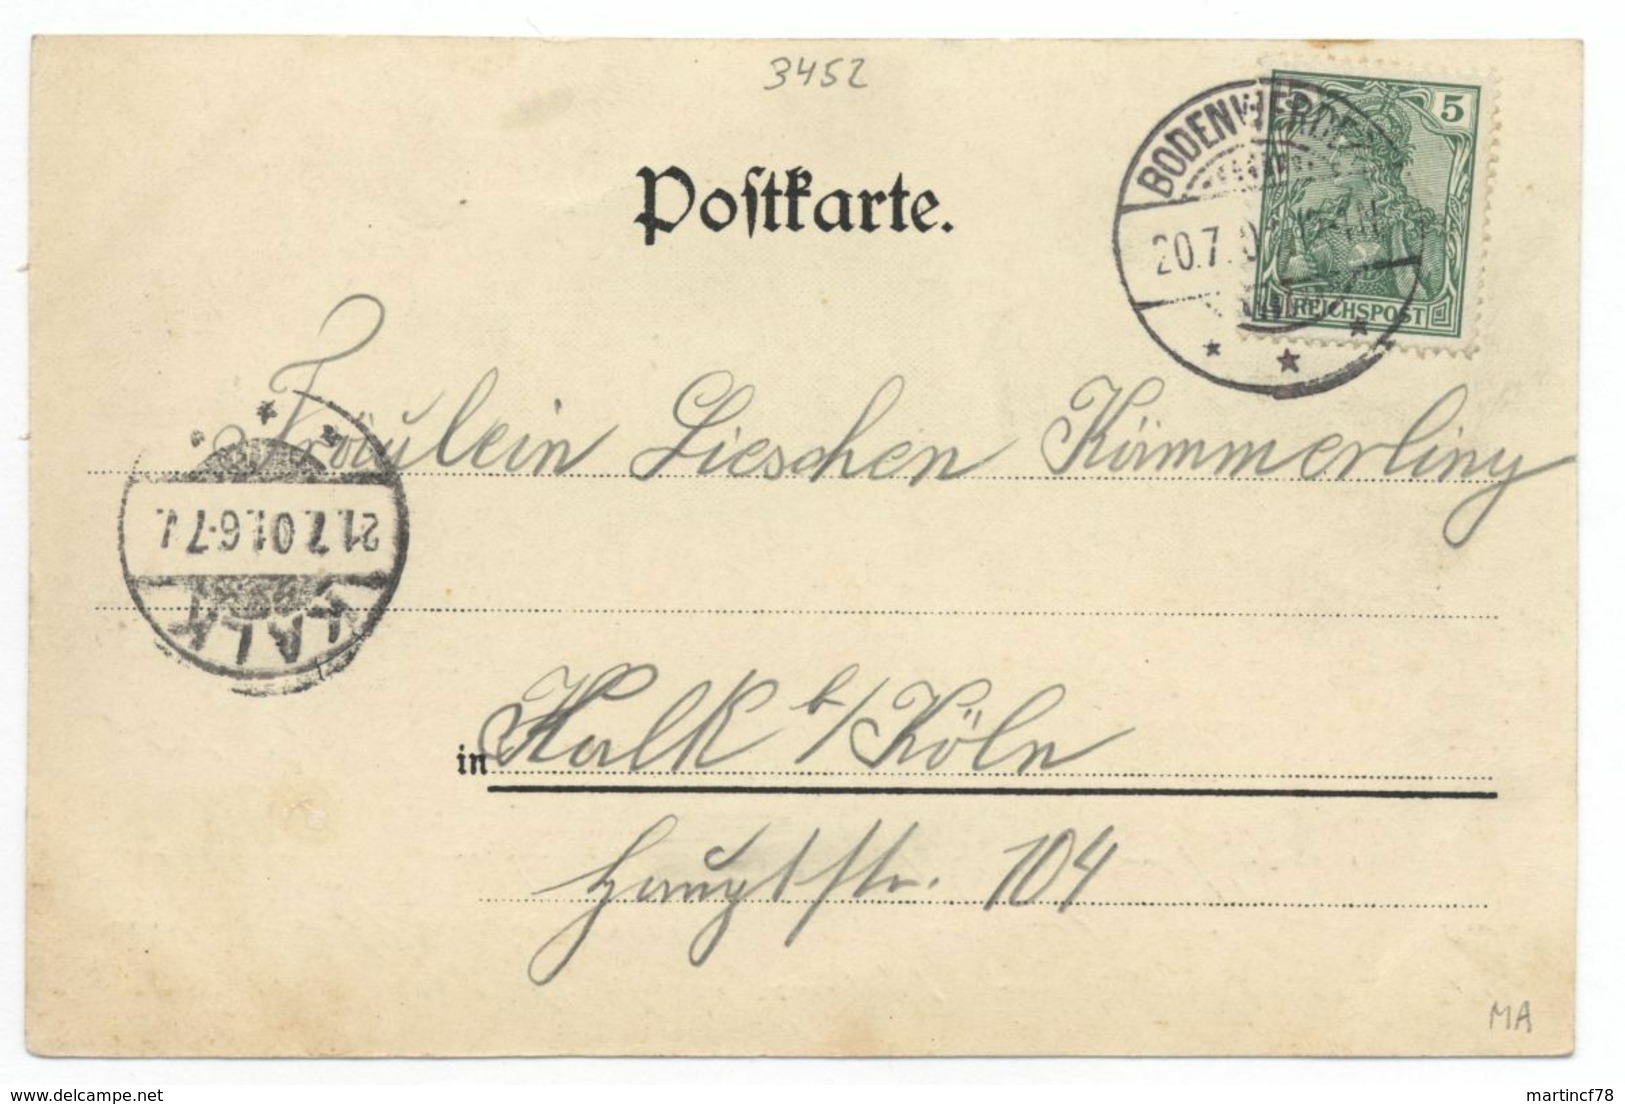 3452
Postkarte.
BODENWERDER
20.7.01 12-1N
5
REICHSPOST
Fräulein Lieschen Kämmerling
21.7.01.6-7 V.
KALK
in Kalk b/Köln
Hauptstr. 104
MA
delcampe.net
martincf78